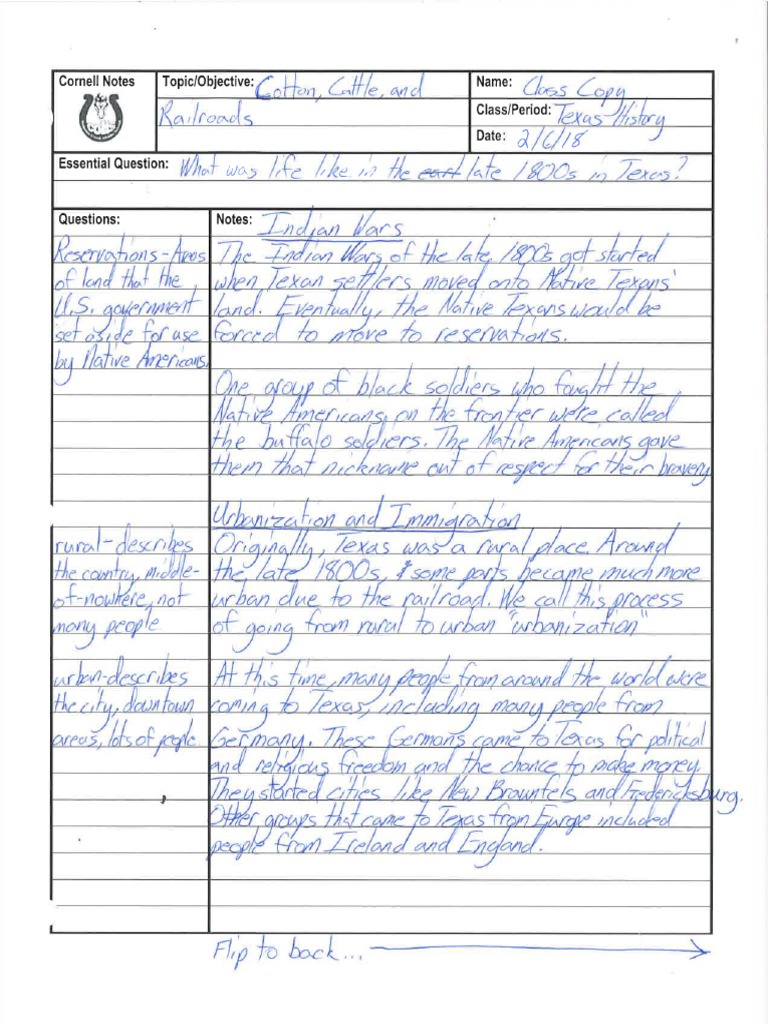 Cornell Notes
Topic/Objective: Cotton, Cattle, and
Railroads
Name: Class Copy
Class/Period: Texas History
Date: 2/6/18
Essential Question: What was life like in the late 1800s in Texas?
Questions:
Reservations - Areas
of land that the
U.S. government
set aside for use
by Native Americans.
rural - describes
the country, middle-
of-nowhere, not
many people
urban - describes
the city, downtown
areas, lots of people
Notes: Indian Wars
The Indian Wars of the late 1800s got started
when Texan settlers moved onto Native Texans'
land. Eventually, the Native Texans would be
forced to move to reservations.
One group of black soldiers who fought the
Native Americans on the frontier were called
the buffalo soldiers. The Native Americans gave
them that nickname out of respect for their bravery
Urbanization and Immigration
Originally, Texas was a rural place. Around
the late 1800s, some parts became much more
urban due to the railroad. We call this process
of going from rural to urban "urbanization"
At this time, many people from around the world were
coming to Texas, including many people from
Germany. These Germans came to Texas for political
and religious freedom and the chance to make money.
They started cities like New Braunfels and Fredericksburg.
Other groups that came to Texas from Europe included
people from Ireland and England.
Flip to back...